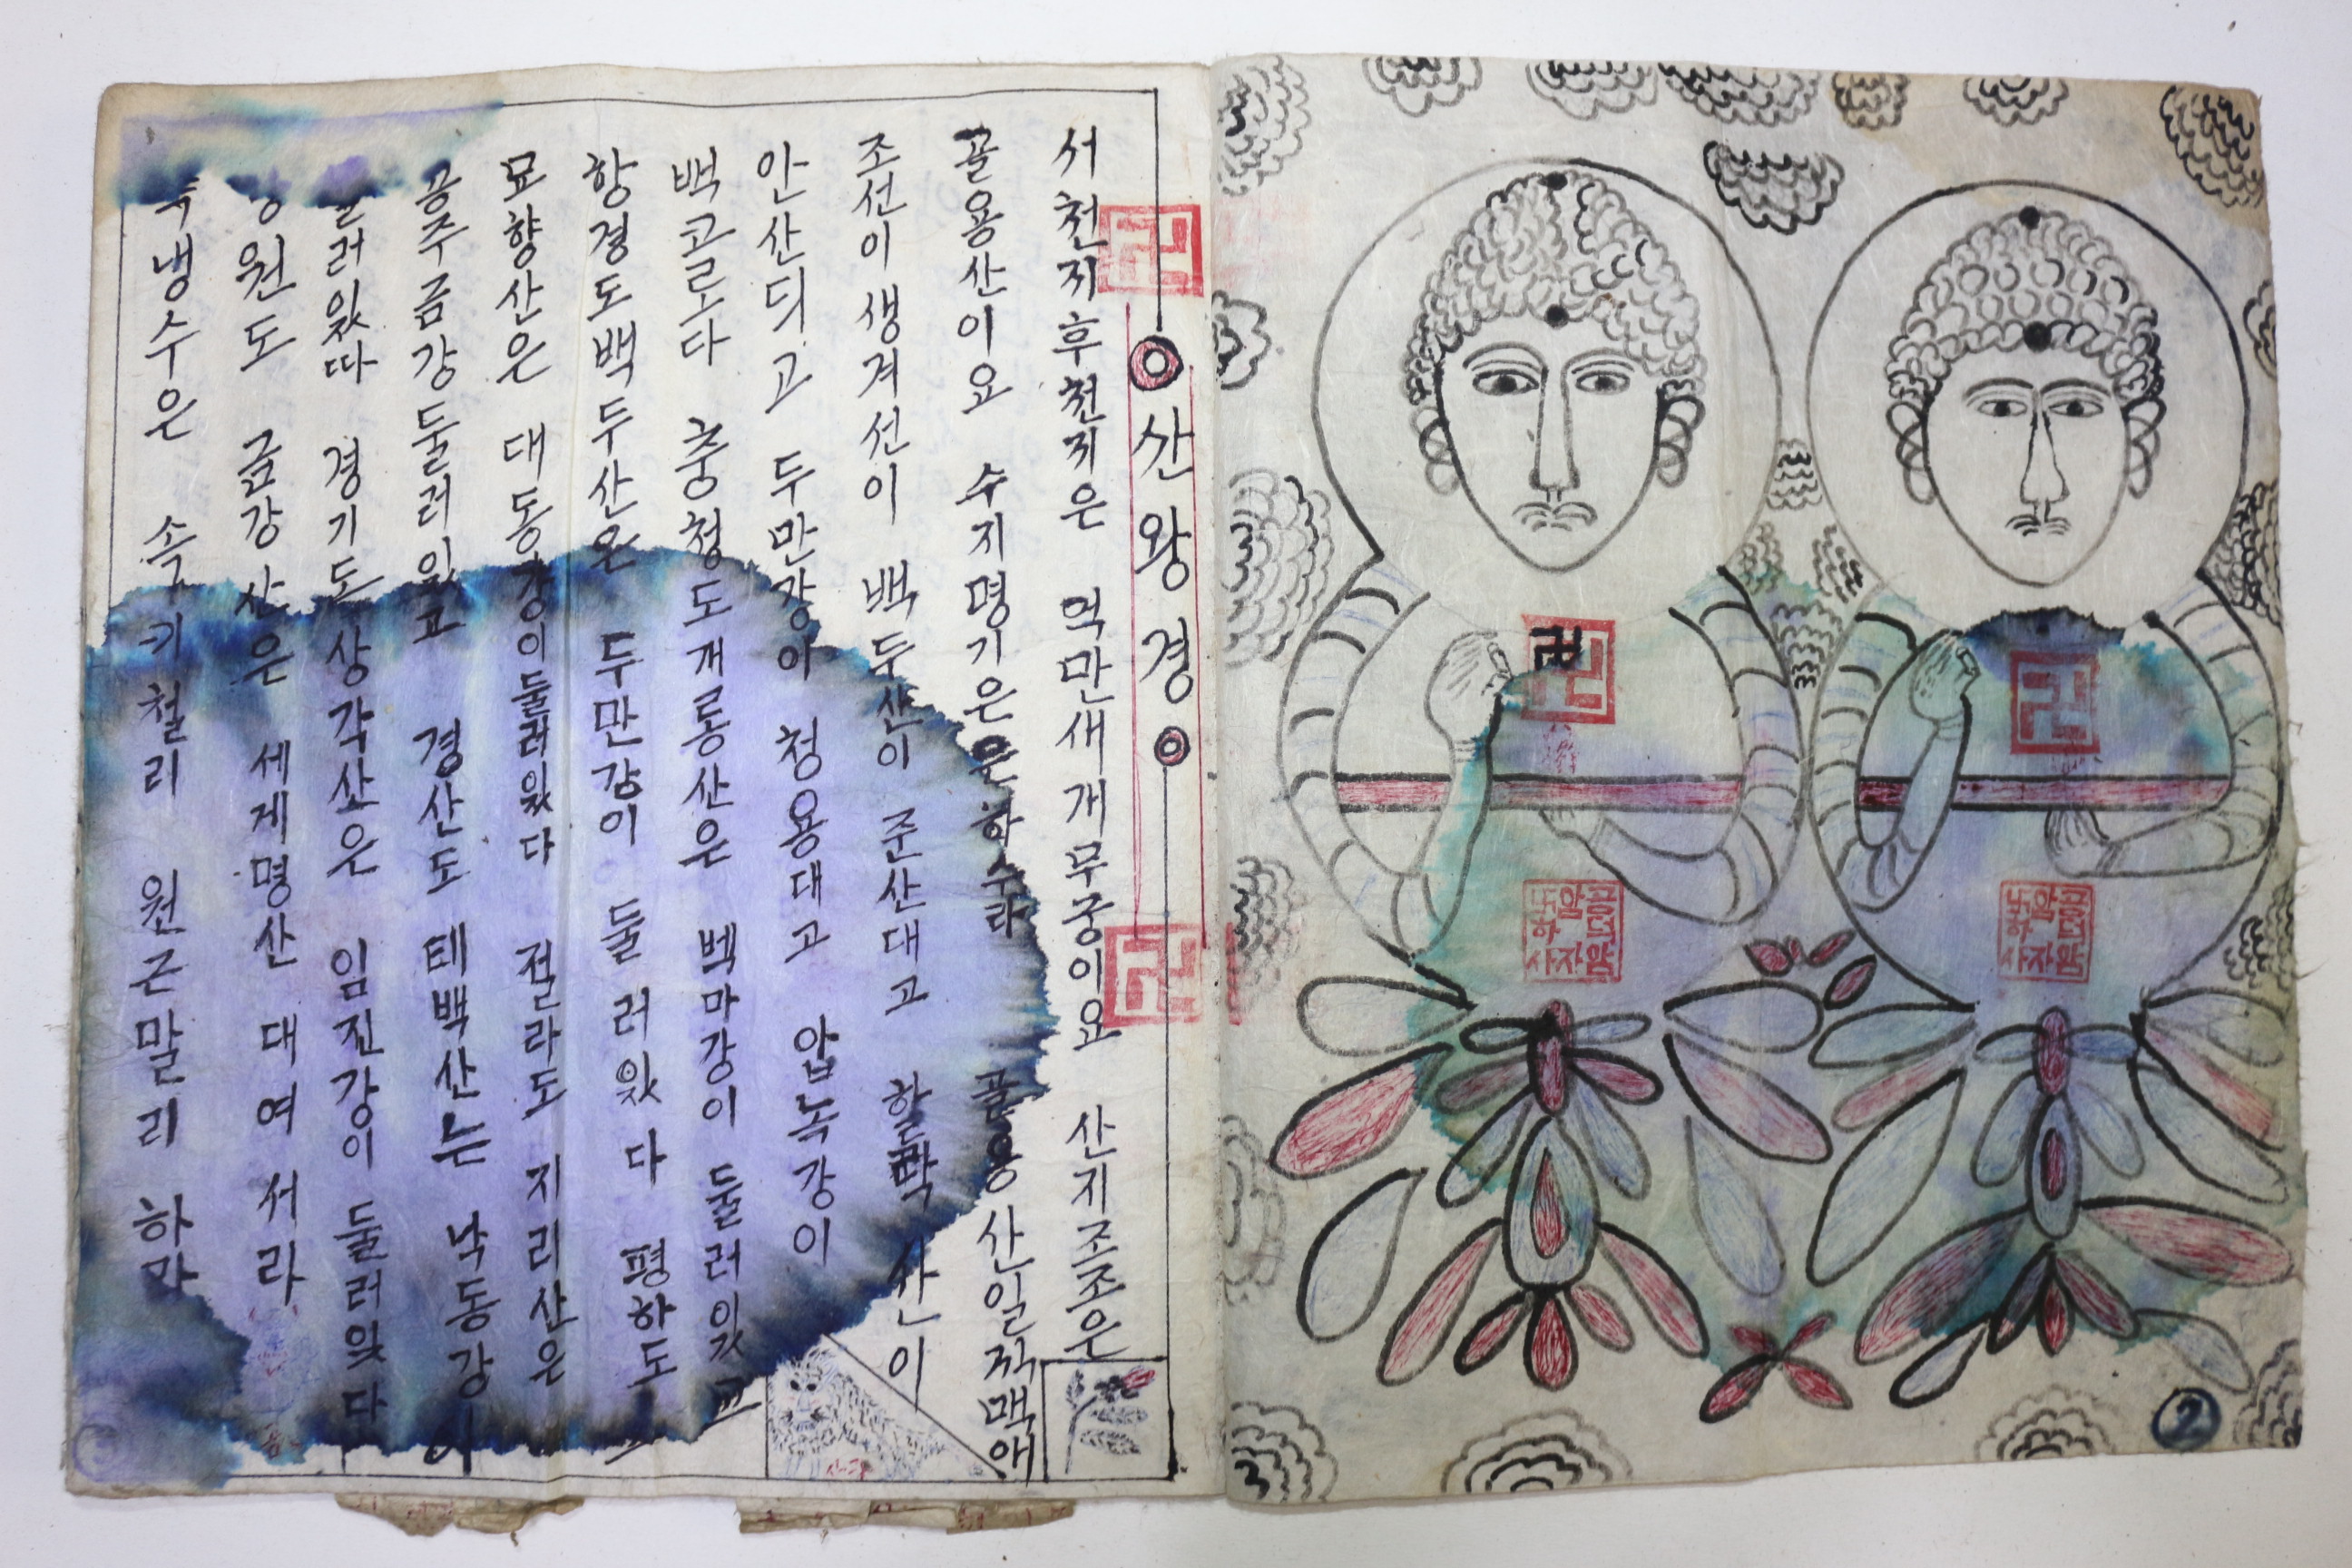 산왕경
서천지후천지은 억만새개무궁이요 산지조조은
골용산이요 수지명기은 하수라 골용산일지맥애
조선이생겨선이 백두산이 준산대고 한 산이
안산듸고 두만강이 청용대고 압녹강이
백고로다 충청도개룡산은 벡마강이 둘러있고
항경도백두산은 두만강이 둘러있다 평하도
묘향산은 대동강이둘러있다 절라도 지리산은
공주금강둘러있고 경산도 태백산는 낙동강이
러있따 경기도 상각산은 임진강이 둘러있다
원도 금강산은 세계명산 대여서라
냉수은 속키철리 원근말리 하마
산군
골암
암자
나하사
골암
암자
나하사
2